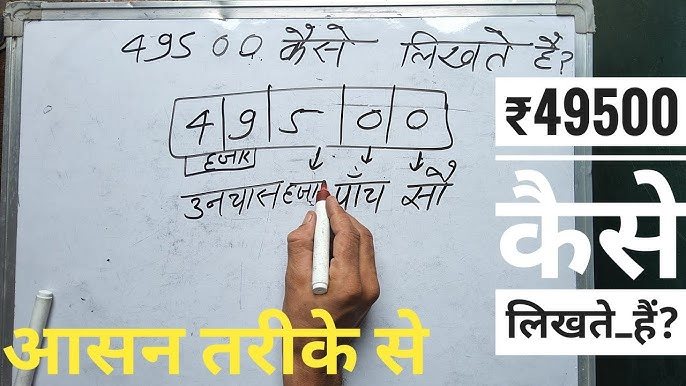 49500 कैसे लिखते है?
4 9 5 0 0
हजार
उनचास हजार पाँच सौ
₹49500
कैसे
लिखते_हैं?
आसन तरीके से